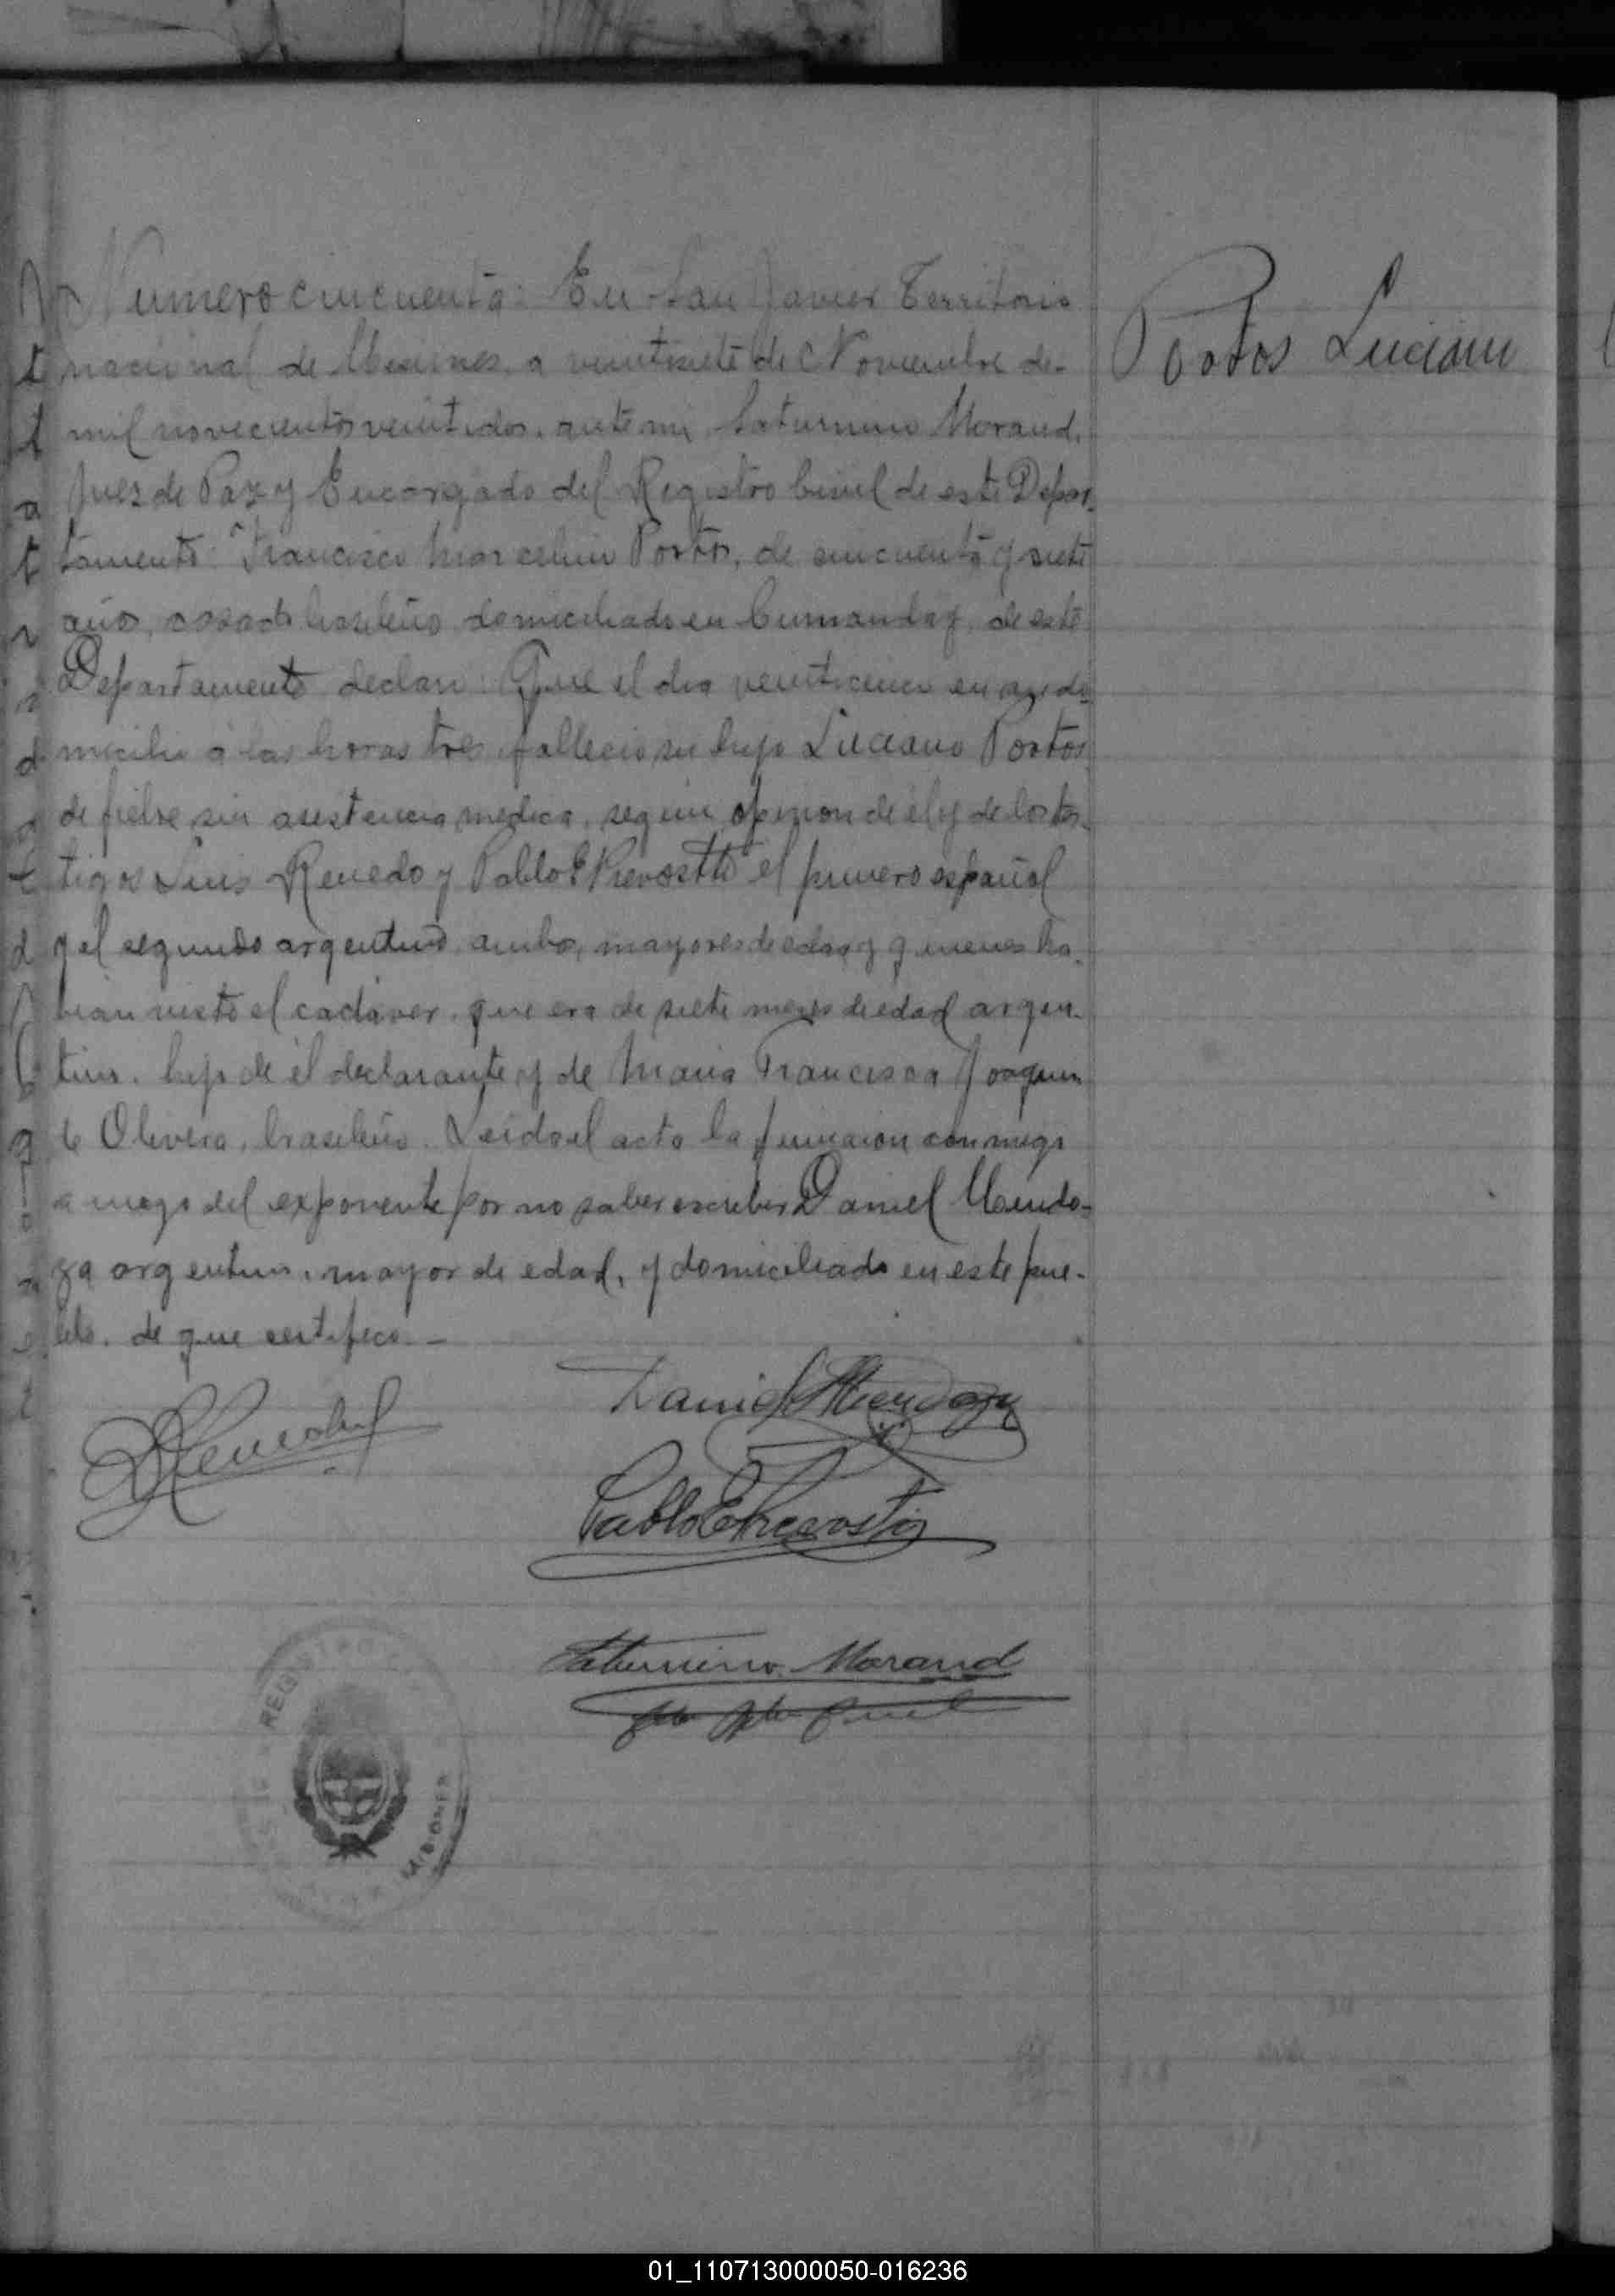 Numero cincuenta: En San Javier Territorio
nacional de Misiones, a veintisiete de Noviembre de
mil novecientos veintidos, ante mi, Saturnino Morand,
Juez de Paz y Encargado del Registro Civil de este Depar-
tamento: Francisco Marcelino Portos, de cincuenta y siete
años, casado brasileño domiciliado en Cumanday, de este
Departamento declaro: Que el dia veinticinco en su do-
micilio á las horas tres fallecio su hijo Luciano Portos
de fiebre sin asistencia medica, segun opinion de él y de los tes-
tigos Luis Renedo y Pablo E Prevostti el primero español
y el segundo argentino, ambos, mayores de edad y quienes ha-
bian visto el cadáver, que era de siete meses de edad argen-
tino, hijo de él declarante y de Maria Francisca Joaquin
de Olivera, brasileño. Leido el acta la firmaron conmigo
a ruego del exponente por no saber escribir Daniel Mendo-
za argentino, mayor de edad, y domiciliado en este pue-
blo, de que certifico.—
Portos Luciano
Daniel Mendoza
Pablo E Prevosti
Saturnino Morand
REGISTRO
MISIONES
01_110713000050-016236